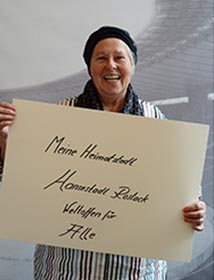 Meine Heimatstadt
Hansestadt Rostock
Weltoffen für
Alle